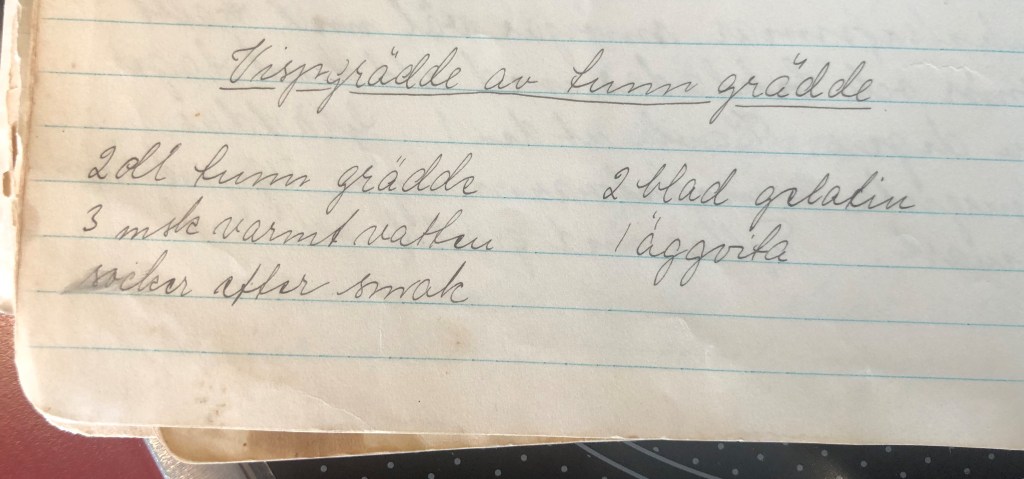 Vispgrädde av tunn grädde
2 dl tunn grädde
3 msk varmt vatten
socker efter smak
2 blad gelatin
1 äggvita